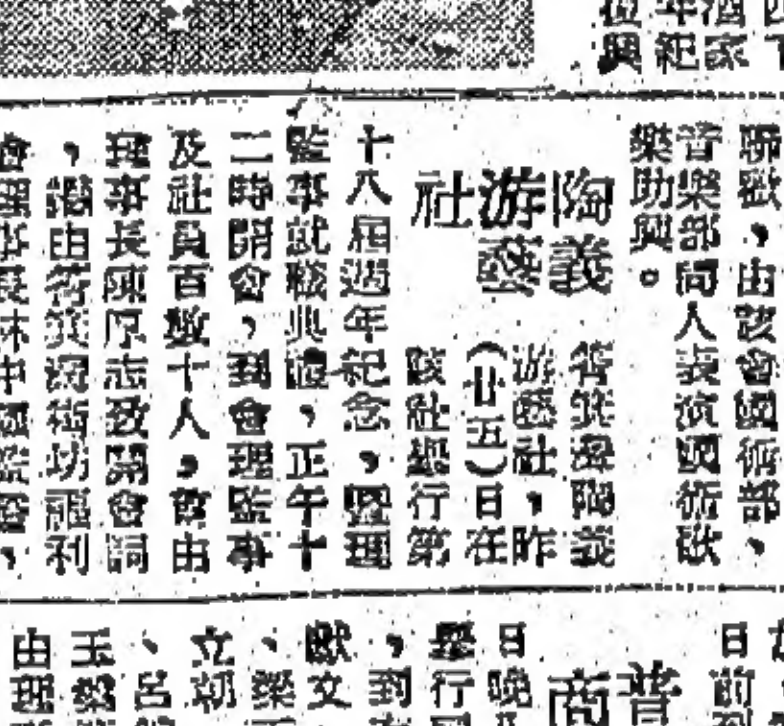 酒家
年紀
興
聯歡，由該會國術部、
音樂部同人表演國術歌
樂助興。
陶義
游藝
社
筲箕灣陶義
游藝社，昨
（廿五）日在
該社舉行第
十八屆週年紀念，暨理
監事就職典禮，正午十
二時開會，到會理監事
及社員百數十人，首由
理事長陳原志致開會詞
，繼由筲箕灣街坊福利
會理事長林中
日前
普
商
日晚
舉行
，到
獻文
、樂
立朝
、呂
玉
由理